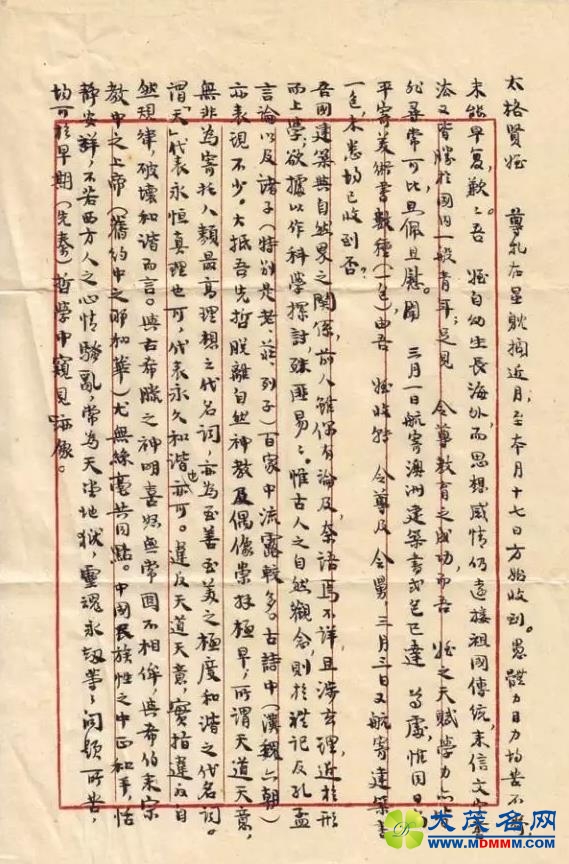 太格賢姪　尊札在星躭擱近月，至本月十七日方始收到。愚體力目力均苦不濟，
未能早复，歉歉。吾　姪自幼生長海外，而思想感情仍遠接祖國傳統，來信文字書
法又皆勝於國内一般青年；足見　令尊教育之成功，而吾　姪之天賦學力亦
非尋常可比，且佩且慰。閱　三月一日航寄澳洲建築書或已已達　為慮，惟同日
平寄美術書數種（一包）由吾　姪收轉　令尊及　令舅，三月三日又航寄建築書
一包，未悉均已收到否？
吾國建築與自然界之關係，前人雖偶有論及，奈語焉不詳，且涉玄理，近於形
而上學；欲據以作科學探討，殊匪易易。惟古人之自然觀念，則於禮記及孔孟
言論以及諸子（特别是老、莊、列子）百家中流露較多。古詩中（漢魏六朝）
亦表現不少。大抵吾先哲脱離自然神教及偶像崇拜極早，所謂天道天意，
無非為寄托人類最高理想之代名詞，亦為至善至美之極度和谐之代名詞。
謂「天」代表永恒真理也可，代表永久和谐也亦可。違反天道天意，實指違反自
然規律，破壞和諧而言。與古希臘之神明喜怒無常固不相侔，與希伯來宗
教中之上帝（舊約中之耶和華）尤無絲毫共同點。中國民族性之中正和平，恬
静安祥，不若西方人之心情騷亂，常為天堂地獄，靈魂永劫等等問題所苦，
均可於早期（先秦）哲學中窺見跡像。
大茂名网
www.MDMMM.com